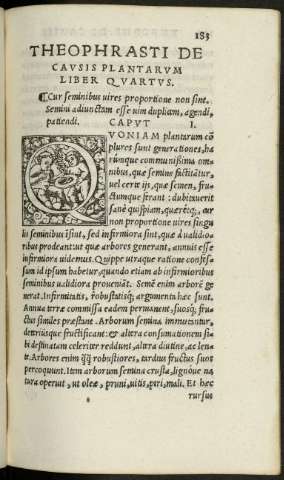 183
THEOPHRASTI DE
CAVSIS PLANTARVM
LIBER QVARTVS.
¶Cur seminibus uires proportione non sint.
Semini adiunctam esse uim duplicem, agendi,
patiendi. CAPVT I.
QVONIAM plantarum cō
plures sunt generationes, ha
rūmque communißima om
nibus, quæ semine factitatur,
uel certe ijs, quæ semen, fru-
ctumque ferant: dubitauerit
sanè quispiam, quæretq;, cur
non proportione uires singu
lis seminibus īsint, sed infirmiora sint, quæ à ualidio-
ribus prodeant: ut quæ arbores generant, annuis esse
infirmiora uidemus. Quippe utraque ratione confes-
sam id ipsum habetur, quando etiam ab infirmioribus
seminibus ualidiora proueniāt. Semē enim arborē ge
nerat. Infirmitatis, robustatisq; argumenta hæc sunt.
Annua terræ commissa eadem permanent, suosq; fru-
ctus similes præstant. Arborum semina immutantur,
deteriúsque fructificant: & altera consumationem si-
bi destinatam celeriter reddunt, altera diutine, ac len-
te. Arbores enim q̃q̃ robustiores, tardius fructus suos
percoquunt. Item arborum semina crusta, lignóue na
tura operuit, ut oleæ, pruni, uitis, piri, mali. Et hæc
rursus